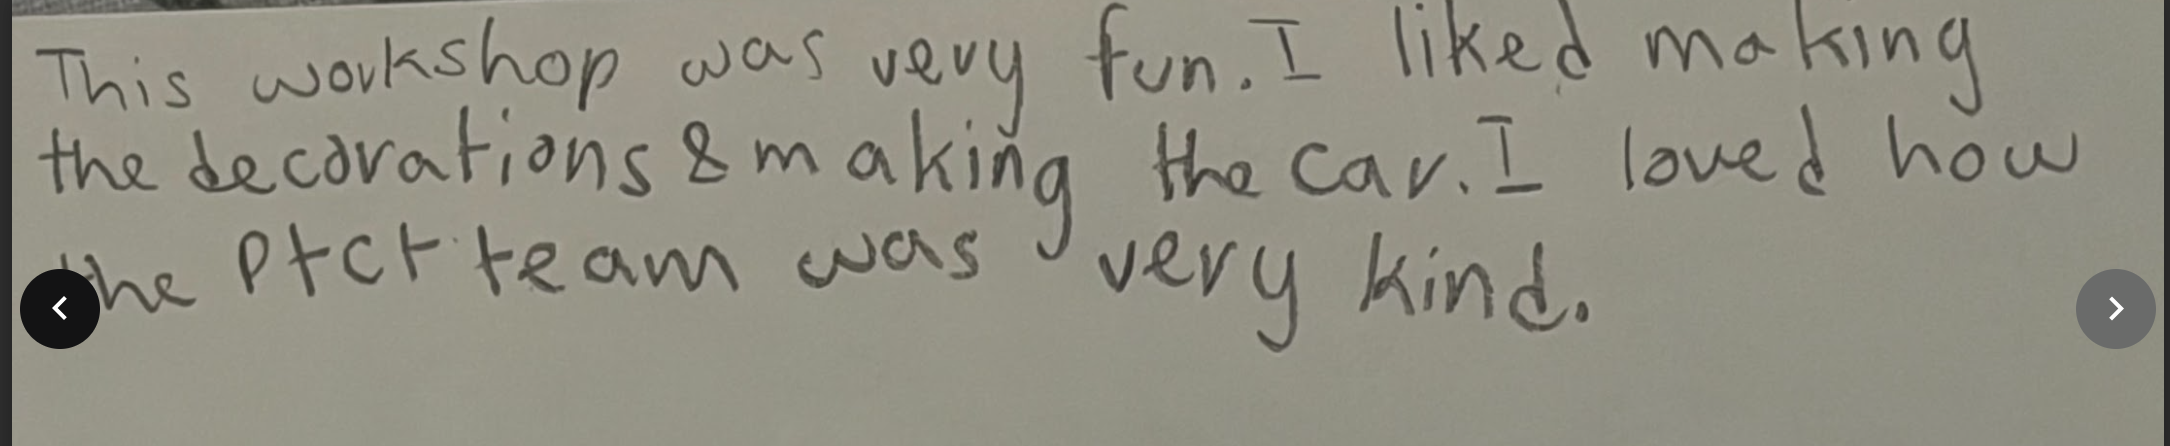 This workshop was very fun. I liked making
the decorations & making the car. I loved how
the Ptct team was very kind.